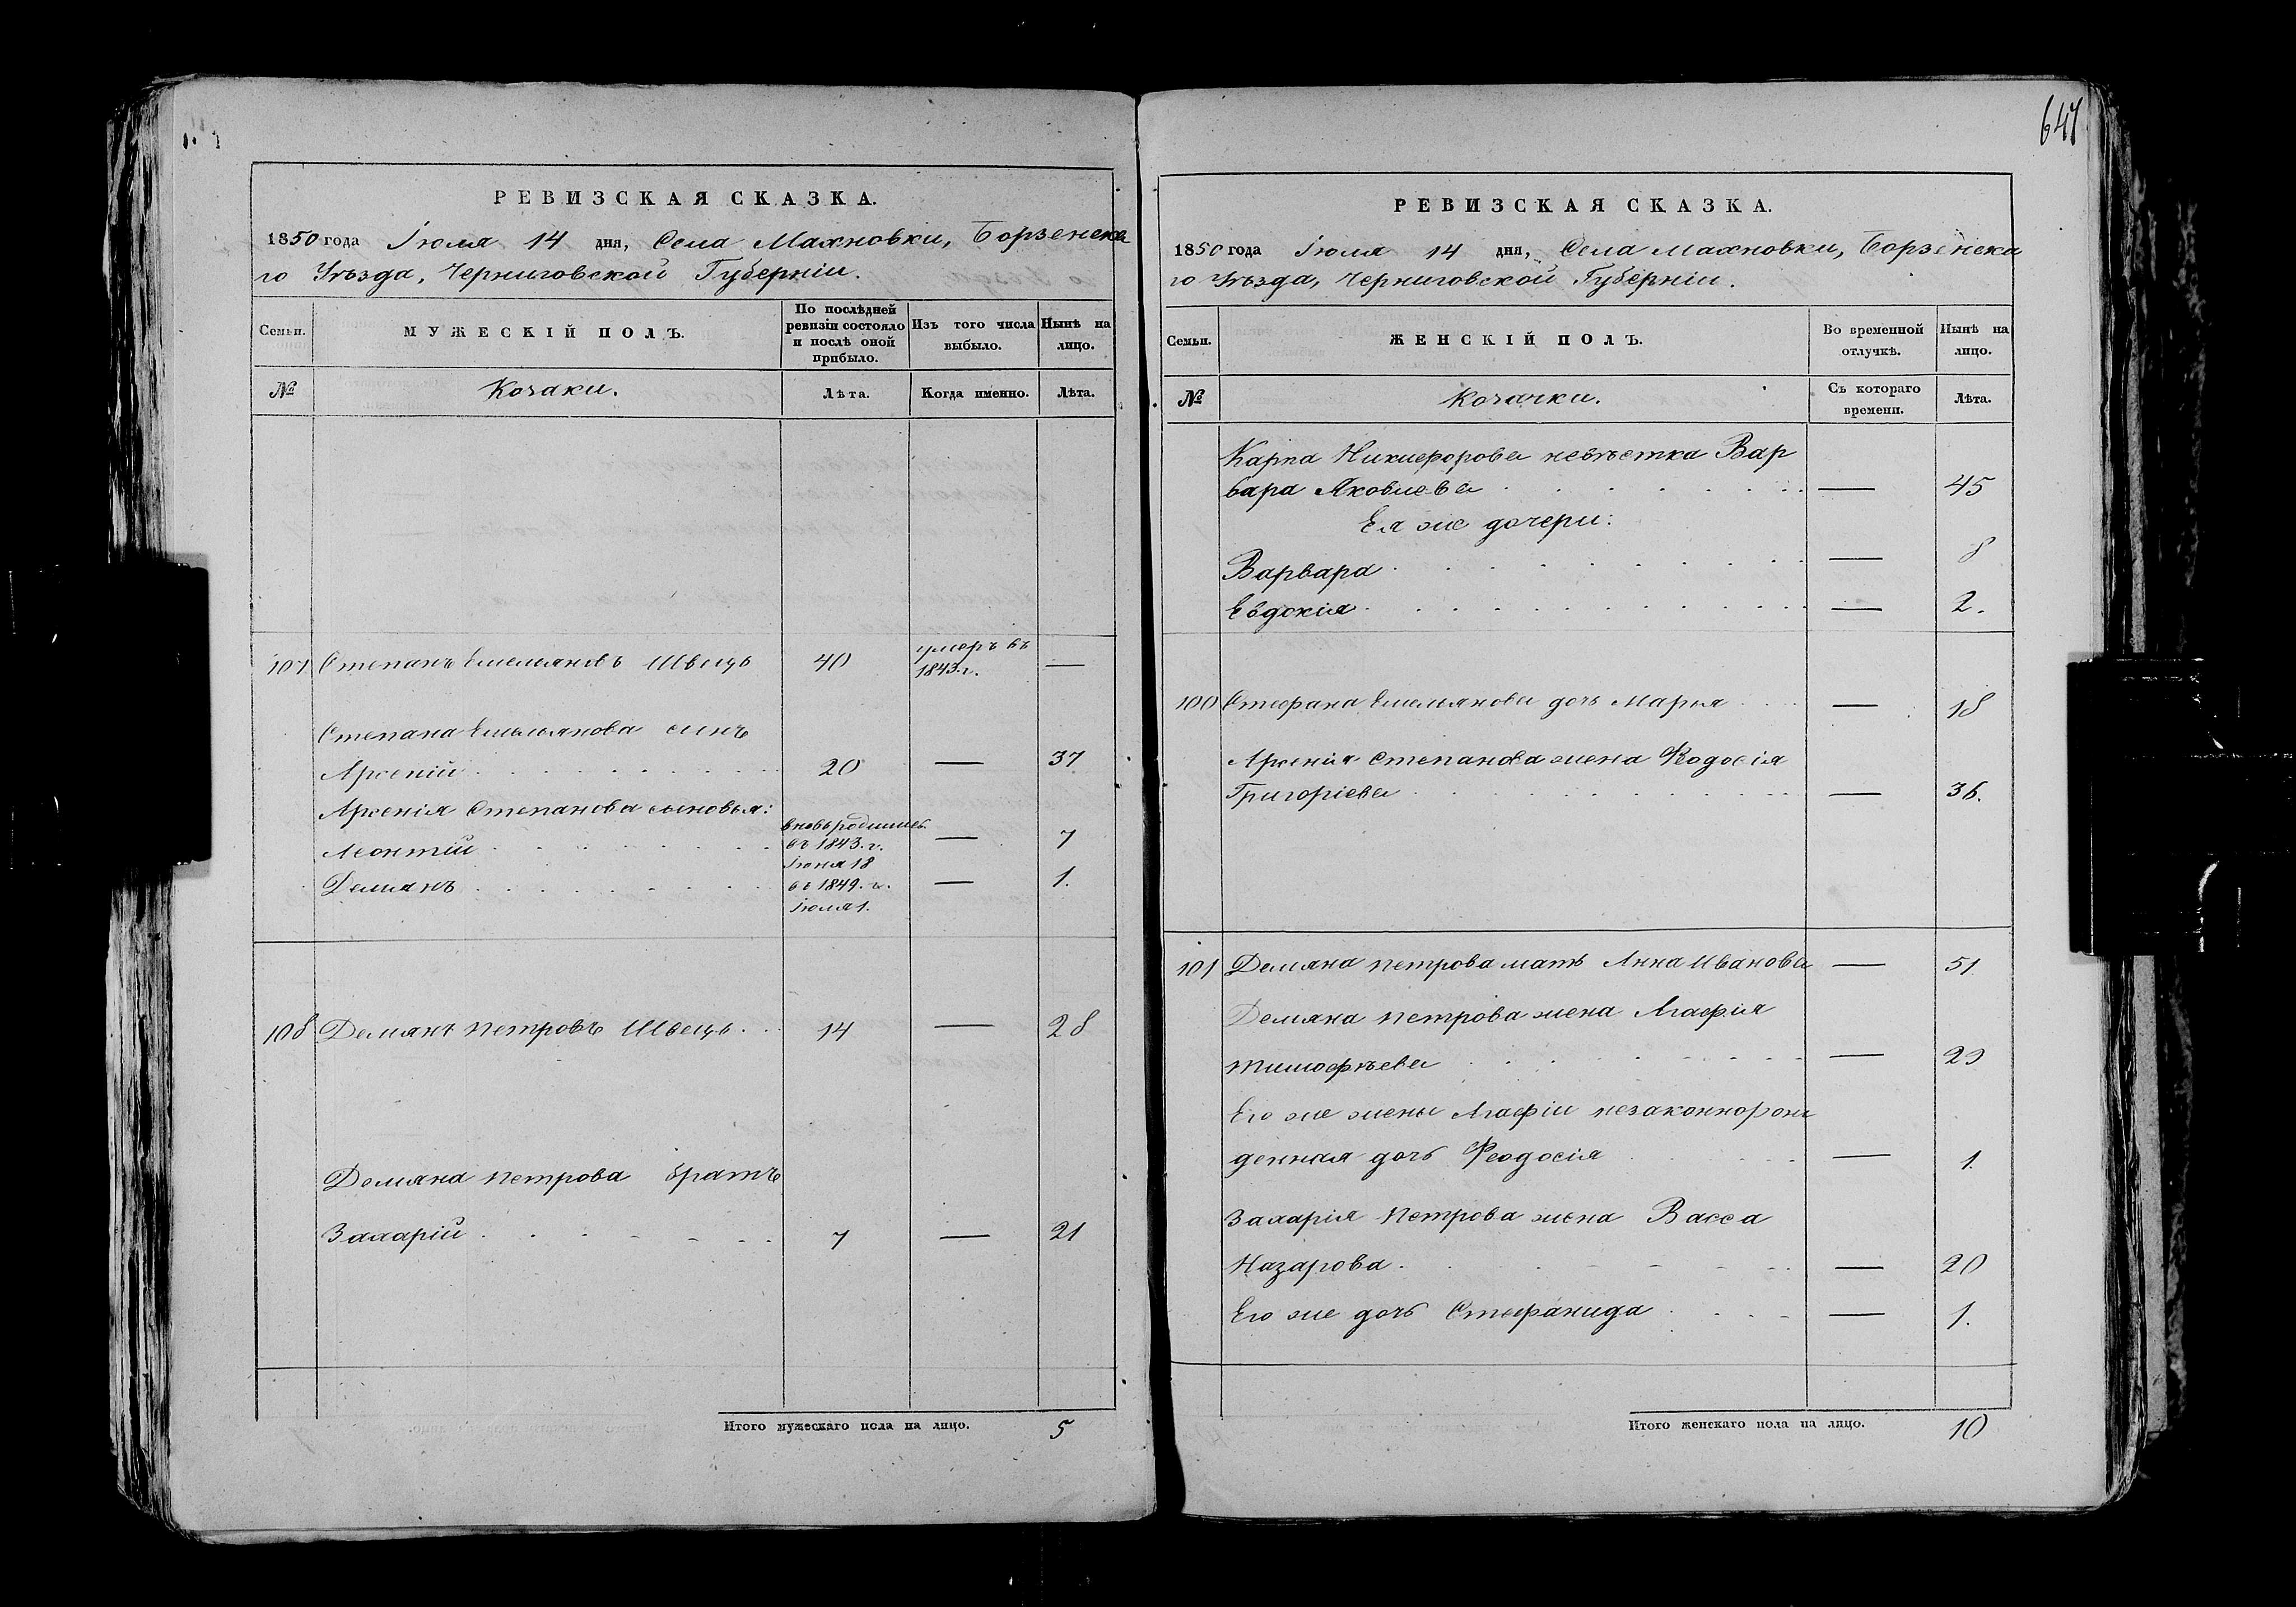 РЕВИЗСКАЯ СКАЗКА.
1850 года Іюля 14 дня, Села Махновки, Борзенска
го Уѣзда, Черниговской Губерніи.
Семьи.
МУЖЕСКІЙ ПОЛЪ.
По послѣдней
ревизіи состояло
и послѣ оной
прибыло.
Изъ того числа
выбыло.
Нынѣ на
лицо.
№
Козаки.
Лѣта.
Когда именно.
Лѣта.
107 Степанъ Емельяновъ Швецъ 40 умеръ въ —
1843 г.
Степана Емельянова сынъ
Арсеній 20 — 37
Арсенія Степанова сыновья:
вновь родились
Леонтій въ 1843. г. — 7
Іюня 18
Демянъ въ 1849. г. — 1.
Іюля 1.
108 Демянъ Петровъ Швецъ 14 — 28
Демяна Петрова братъ
Захарій 7 — 21
Итого мужескаго пола на лицо. 5
647
РЕВИЗСКАЯ СКАЗКА.
1850 года Іюля 14 дня, Села Махновки, Борзенска
го Уѣзда, Черниговской Губерніи.
Семьи.
ЖЕНСКІЙ ПОЛЪ.
Во временной
отлучкѣ.
Нынѣ на
лицо.
№
Козачки.
Съ котораго
времени.
Лѣта.
Карпа Никифорова невѣстка Вар
вара Яковлева — 45
Ея же дочери:
Варвара — 8
Евдокія — 2.
100 Стефана Емельянова дочь Марья — 18
Арсенія Степанова жена Феодосія
Григоріева — 36.
101 Демяна Петрова мать Анна Иванова — 51
Демяна Петрова жена Агафія
Тимофѣева — 29
Его же жены Агафіи незаконнорож
денная дочь Феодосія — 1.
Захарія Петрова жена Васса
Назарова — 20
Его же дочь Стефанида — 1.
Итого женскаго пола на лицо. 10